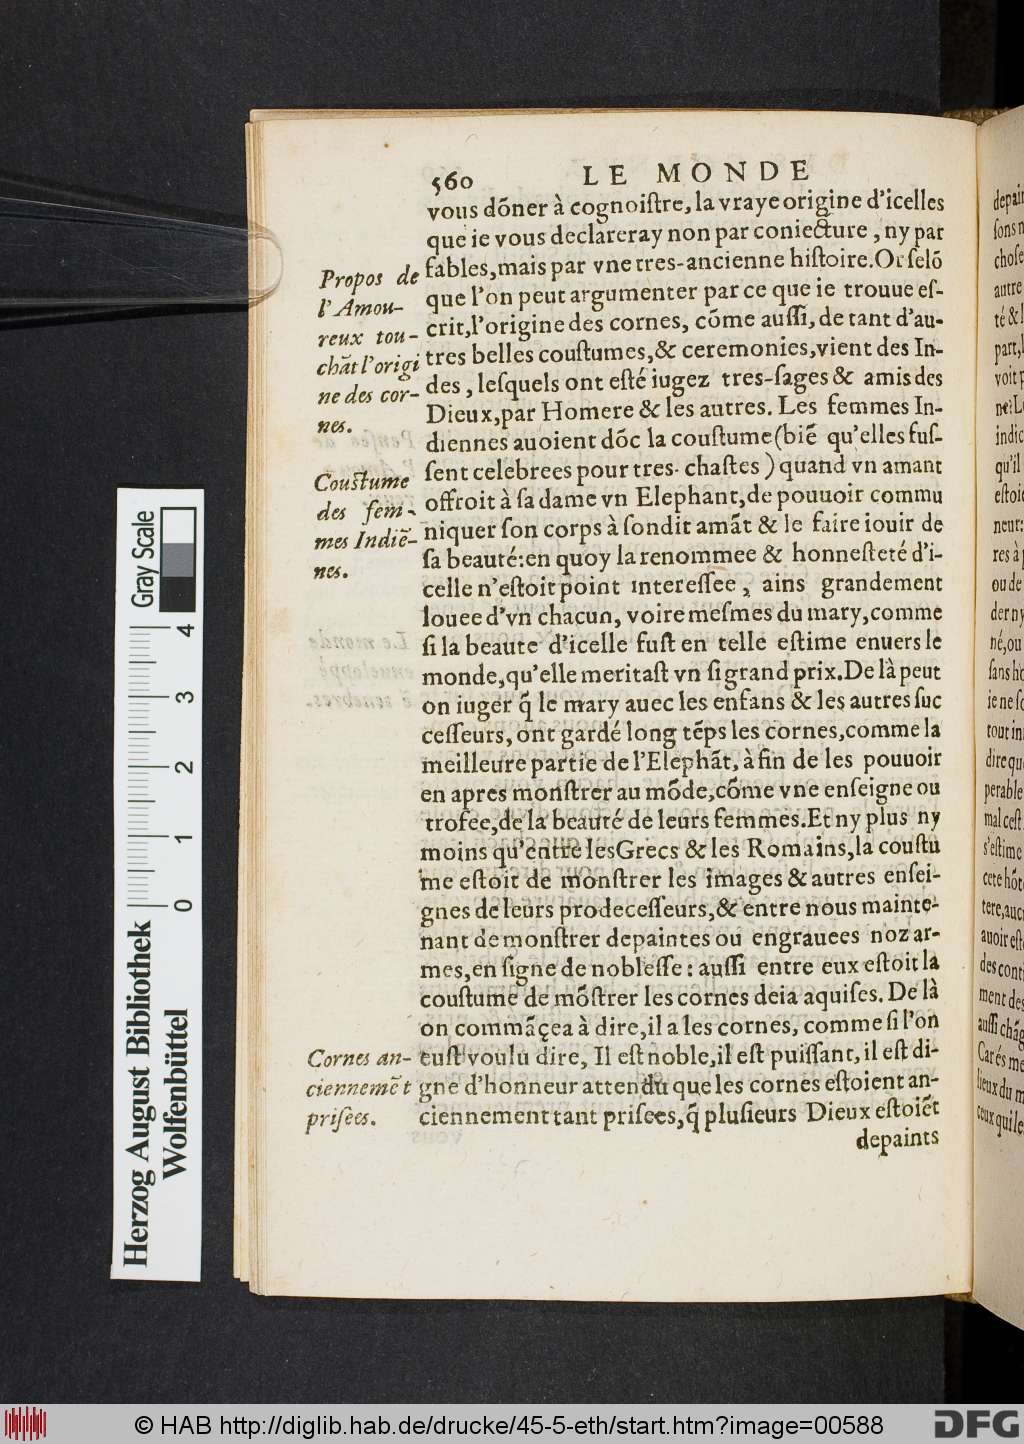 560 LE MONDE
vous dõner à cognoiſtre, la vraye origine d'icelles
que ie vous declareray non par coniecture, ny par
fables, mais par vne tres-ancienne hiſtoire. Or ſelõ
que l'on peut argumenter par ce que ie trouue eſ-
crit, l'origine des cornes, cõme auſſi, de tant d'au-
tres belles couſtumes, & ceremonies, vient des In-
des, leſquels ont eſté iugez tres-ſages & amis des
Dieux, par Homere & les autres. Les femmes In-
diennes auoient dõc la couſtume (biẽ qu'elles fuſ-
ſent celebrees pour tres-chaſtes) quand vn amant
offroit à ſa dame vn Elephant, de pouuoir commu
niquer ſon corps à ſondit amãt & le faire iouir de
ſa beauté: en quoy la renommee & honneſteté d'i-
celle n'eſtoit point intereſſee, ains grandement
louee d'vn chacun, voire meſmes du mary, comme
ſi la beaute d'icelle fuſt en telle eſtime enuers le
monde, qu'elle meritaſt vn ſi grand prix. De là peut
on iuger q̃ le mary auec les enfans & les autres ſuc
ceſſeurs, ont gardé long tẽps les cornes, comme la
meilleure partie de l'Elephãt, à fin de les pouuoir
en apres monſtrer au mõde, cõme vne enſeigne ou
trofee, de la beauté de leurs femmes. Et ny plus ny
moins qu'entre les Grecs & les Romains, la couſtu
me eſtoit de monſtrer les images & autres enſei-
gnes de leurs prodeceſſeurs, & entre nous mainte-
nant de monſtrer depaintes ou engrauees noz ar-
mes, en ſigne de nobleſſe: auſſi entre eux eſtoit la
couſtume de mõſtrer les cornes deia aquiſes. De là
on commãçea à dire, il a les cornes, comme ſi l'on
euſt voulu dire, Il eſt noble, il eſt puiſſant, il eſt di-
gne d'honneur attendu que les cornes eſtoient an-
ciennement tant priſees, q̃ pluſieurs Dieux eſtoiẽt
depaints
Propos de
l'Amou-
reux tou-
chãt l'origi
ne des cor-
nes.
Couſtume
des fem-
mes Indiẽ-
nes.
Cornes an-
ciennemẽt
priſees.
depain
ſons n
choſe
autre
té & l
part, l
voit p
ne? L
indic
qu'il
eſtoie
neur:
res à p
ou de
der ny
né, ou
ſans ho
ie ne ſc
tout in
dire qu
perable
mal ceſt
s'eſtime
cete hõt
tere, auc
auoir eſt
des cont
ment des
auſſi chãg
Car és me
lieux du m
ceux qui le
Gray Scale
4
3
2
1
0
Herzog August Bibliothek
Wolfenbüttel
© HAB http://diglib.hab.de/drucke/45-5-eth/start.htm?image=00588
DFG